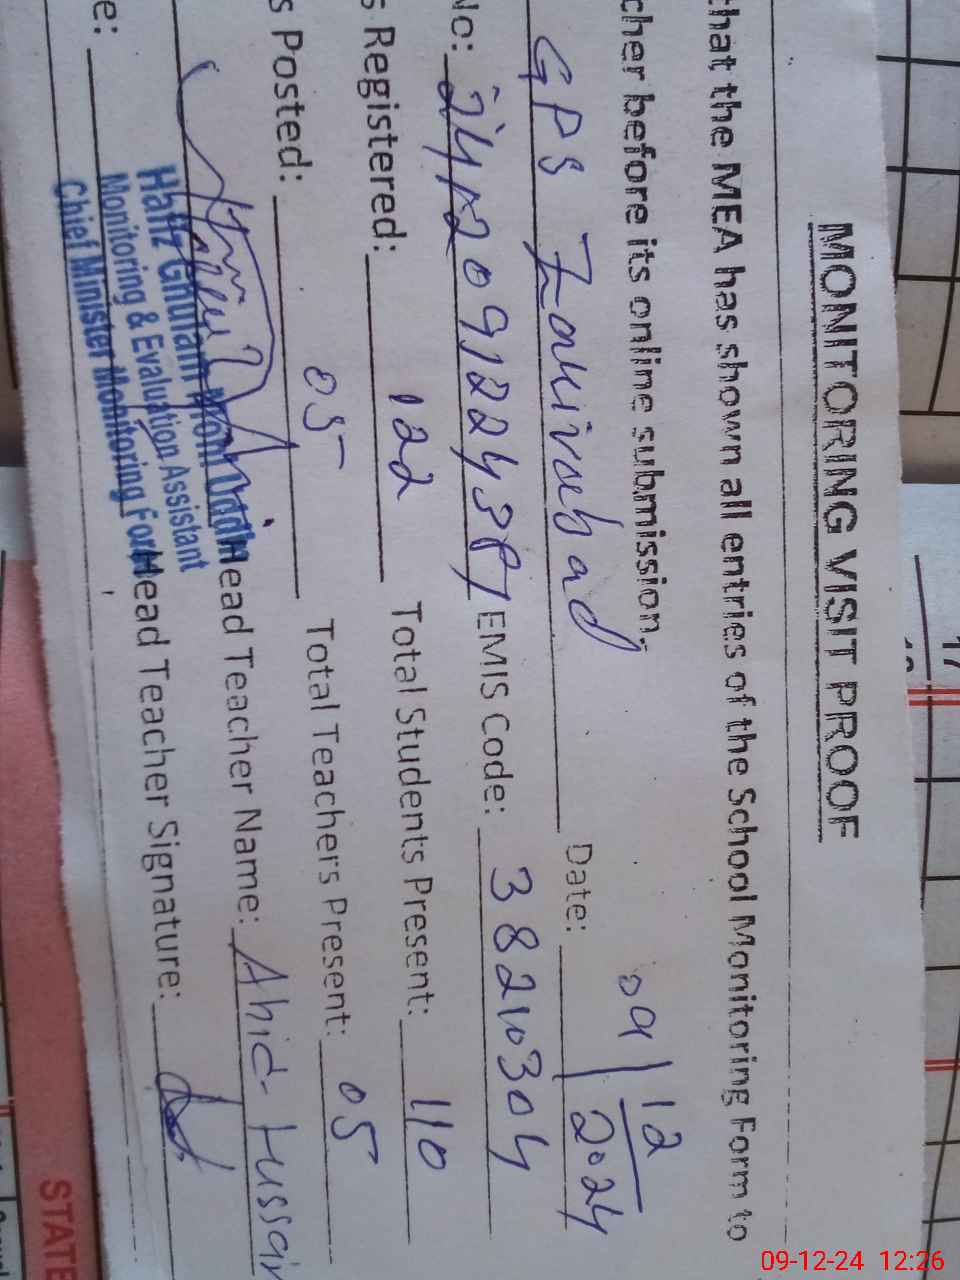 MONITORING VISIT PROOF
that the MEA has shown all entries of the School Monitoring Form to
cher before its online submission.
GPS Date: 09/12/2024
No: EMIS Code: 38210304
s Registered: 122 Total Students Present: 110
s Posted: 05 Total Teachers Present: 05
Head Teacher Name: Abid Hussain
Hafiz Ghulam
Monitoring & Evaluation Assistant
Chief Minister Monitoring Force
e: Head Teacher Signature:
17
STATE
09-12-24 12:26